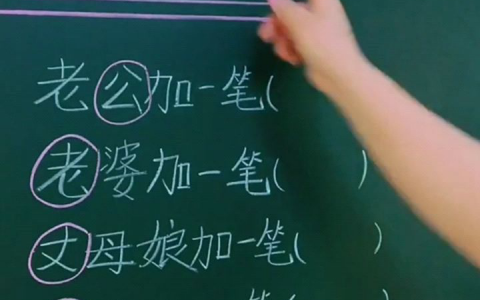 老公加一笔(
老婆加一笔( )
丈母娘加一笔( )
一笔(